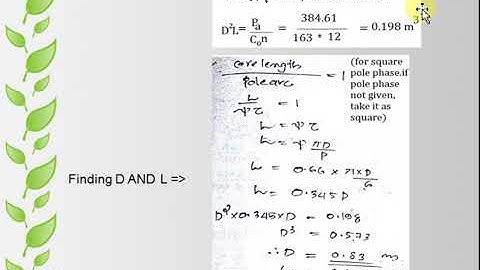 D²L= Pa / C₀n = 384.61 / 163 * 12 = 0.198 m³
core length / pole arc = 1
(for square pole phase.if pole phase not given, take it as square)
L / ψτ = 1
L = ψτ
L = ψ πD / P
Finding D AND L =>
L = 0.66 × π×D / 6
L = 0.345D
D²×0.345×D = 0.198
D³ = 0.573
∴ D = 0.83 m